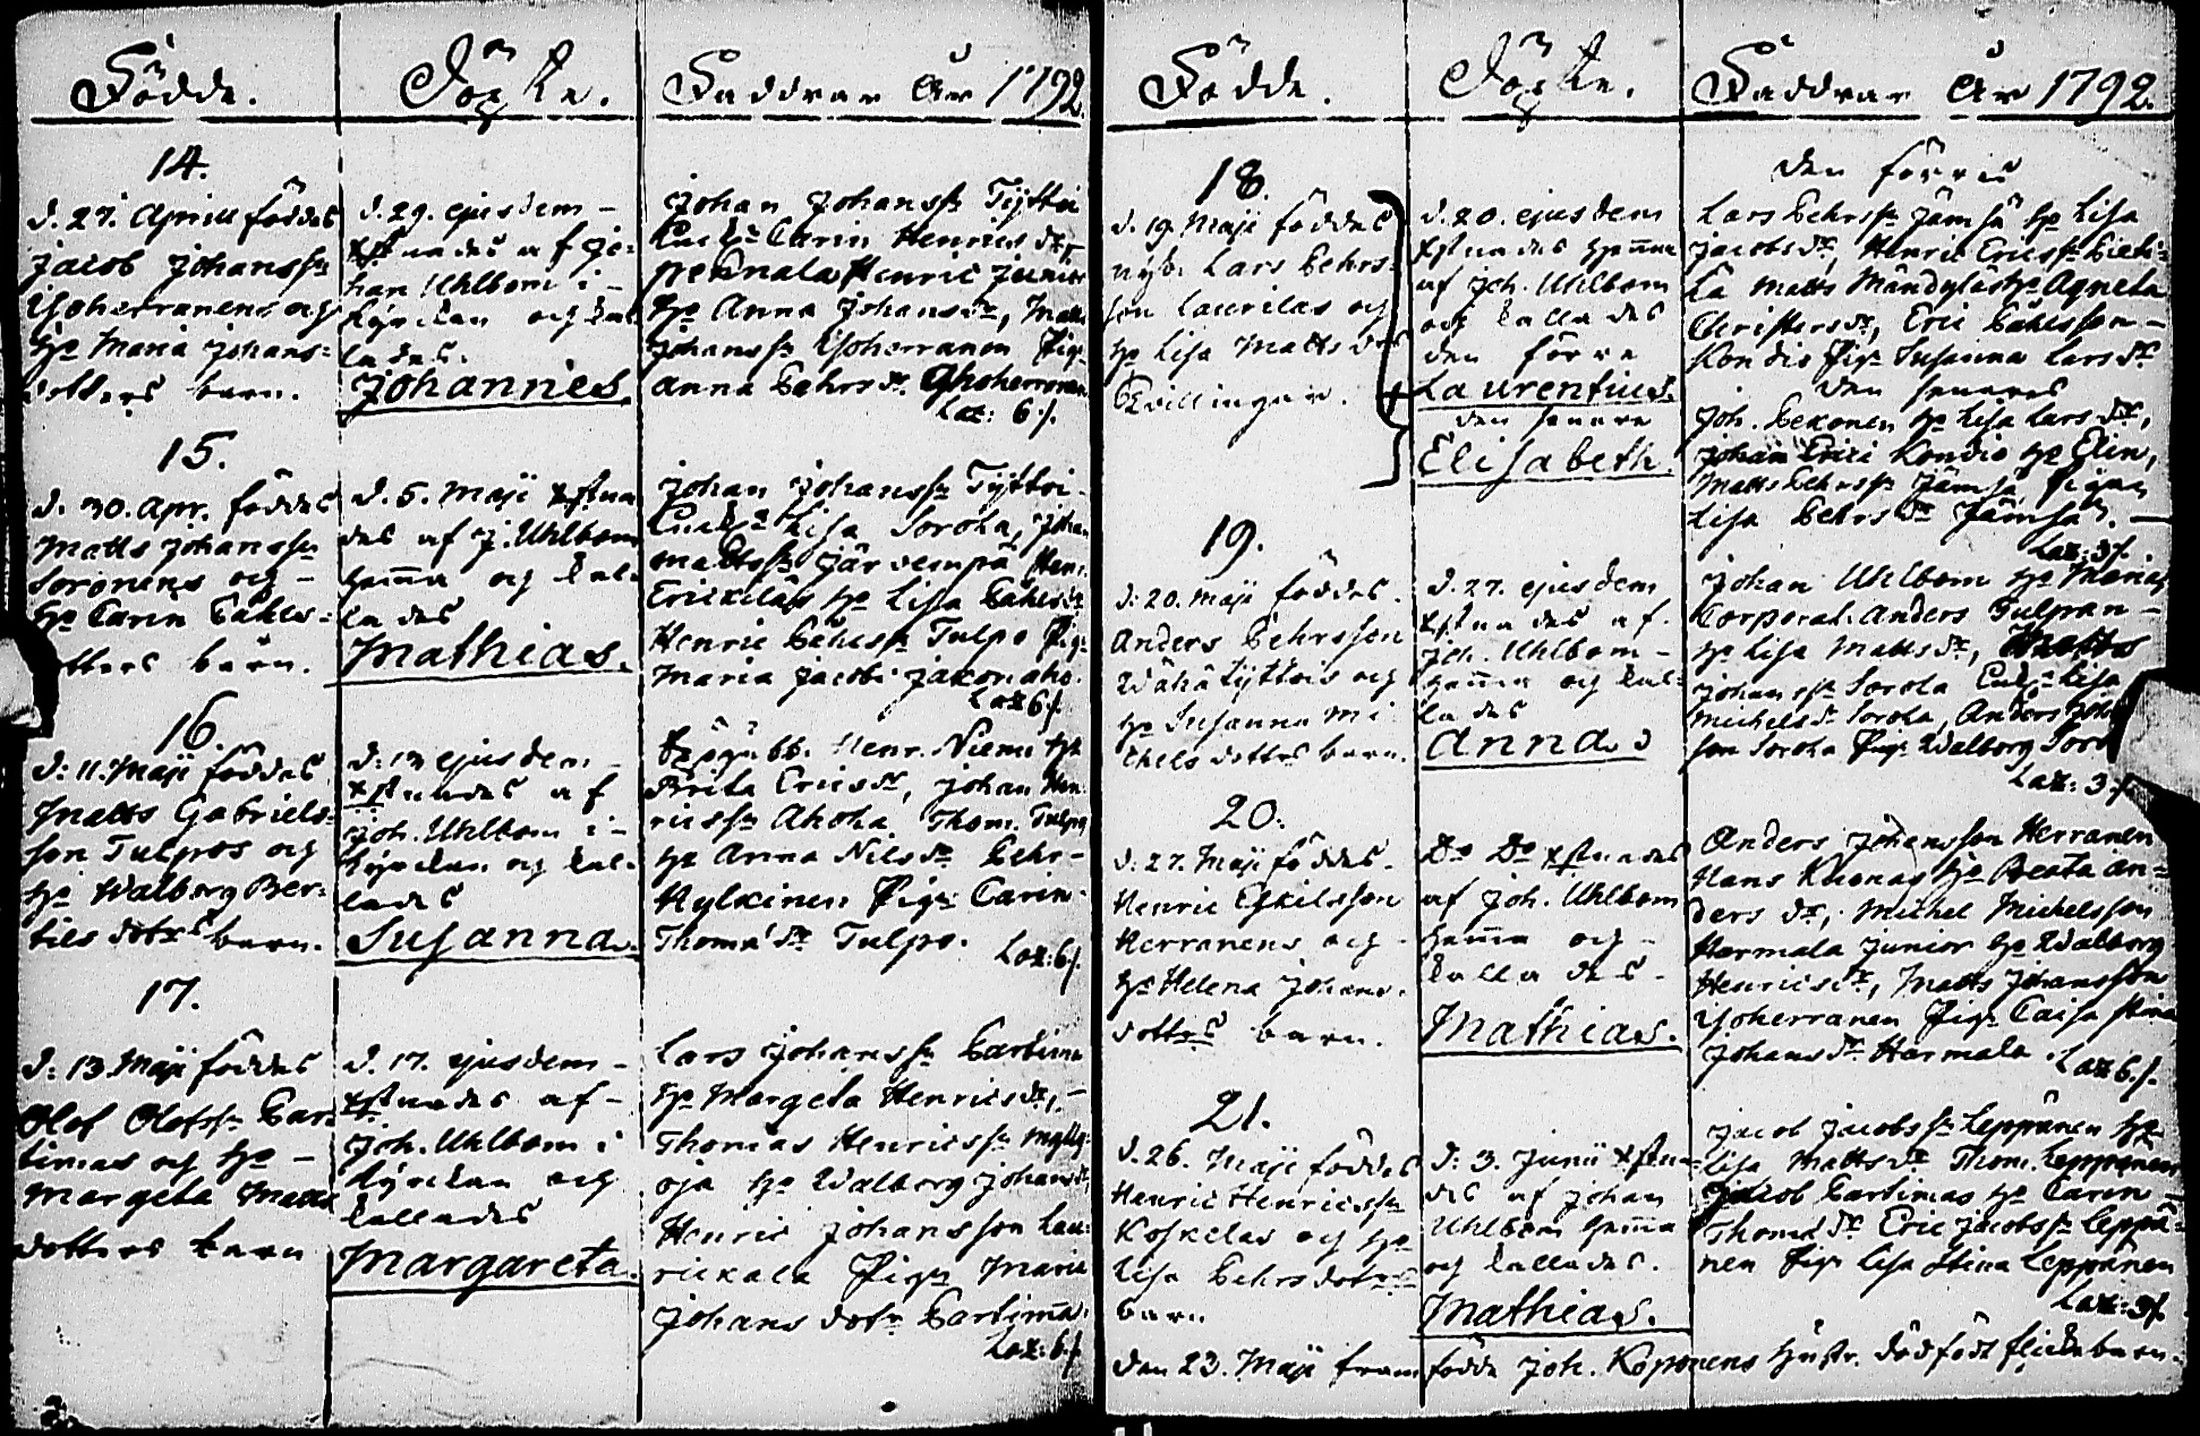 Födde.
Döpte.
Faddrar År 1792.
14.
d. 27. Aprill föddes
Jacob Johanss:
Isoherranens och
h:o Maria Johans=
dotters barn.
d. 29. ejusdem -
xstnades af Jo=
han Uhlbom i -
kyrckan och kal=
lades.
Johannes.
Johan Johanss:n Tyttoi
Carin Henrics d:r
Henric Junior
h:o Anna Johans d:r, Matts
Johanss:n Isoherranen Pig:
Anna Pehrs d:r
Laz: 6 s.
15.
d. 30. Apr. föddes
Matts Johanss:n
Soronens och -
h:o Carin Påhls=
dotters barn.
d. 5. Maji xstna
des af J. Uhlbom
hema och kal-
lades
Mathias.
Johan Johanss:n Tyttoi-
Lisa Sorola, Johan
Mattss:n Järvempä Hen:
Erickiläs h:o Lisa Påhls d:r
Henric Pehrss:n Tulpo Pig:
Maria Jacobi
Laz 6 s.
16.
d: 11. Maji föddes
Matts Gabriels=
son Tulpos och
h:o Walborg Ber=
tils dotrs barn.
d: 13 ejusdem -
xstnades af
Joh. Uhlbom i -
kyrckan och kal-
lades
Susanna.
Henr. Niemi h:o
Brita Erics d:r, Johan Hen
ricss:n Ahoha Thom. Tulpo
h:o Anna Nils d:r Pehr -
Hylkinen Pig: Carin
Thomæ d:r Tulpo.
Laz: 6 s.
17.
d: 13 Maji föddes
Olof Olofss:n Par=
timas och h:o -
Margeta Matts
dotters barn
d. 17. ejusdem -
xstnades af -
Joh. Uhlbom i
kyrckan och
kallades
Margareta.
Lars Johanss:n Partima
h:o Margeta Henrics d:r, -
Thomas Henricss:n Mylly=
oja h:o Walborg Johans d:r
Henric Johansson Lau=
rickala Pig: Maria
Johans dotr Partima.
Laz: 6 s.
Födde.
Döpte.
Faddrar År 1792.
18.
d. 19. Maji föddes
nyb: Lars Pehrs=
son Laurilas och
h:o Lisa Matts drs
Tvillingar.
d. 20. ejusdem
xstnades hema
af Joh. Uhlbom
och kallades
den förre
Laurentius.
den senare
Elisabeth.
den förres
Lars Pehrss:n Jämsä h:o Lisa
Jacobs d:r, Henric Ericss:n Pieti=
lä Matts Mändyläs h:o Agneta
Christers d:r, Eric Påhlsson -
Kondio Pig: Susanna Lars d:r
den senares
Joh. Pekonen h:o Lisa Lars d:r,
Johan Erici Kondio h:o Elin,
Matts Pehrss:n Jämsä, Pigan
Lisa Pehrs d:r Jämsä. -
Laz: 3 s.
19.
d: 20. Maji föddes.
Anders Pehrsson
Wähätyttois och
h:o Susanna Mi
chels dottrs barn.
d. 27. ejusdem
xstnades af.
Joh. Uhlbom -
hema och kal=
lades
Anna.
Johan Uhlbom h:o Maria,
Corporal. Anders Tulpan -
h:o Lisa Matts d:r, Matts
Johanss:n Sorola Lisa
Michels d:r Sorola, Anders Joh
son Sorola Pig: Walborg Soro
Laz: 3 s.
20.
d: 27. Maji föddes.
Henric Eskilsson
Herranens och
h:o Helena Johans.
dottrs barn.
D:o D:o xstnades
af Joh. Uhlbom
hema och -
kallades.
Mathias.
Anders Johansson Herranen
Hans Kuonas h:o Beata An=
ders d:r, Michel Michelsson
Harmala Junior h:o Walborg
Henrics d:r, Matts Johansson
Isoherranen Pig: Caisa Stina
Johans d:r Harmala.
Laz 6. s.
21.
d. 26. Maji föddes
Henric Henricss:n
Koskelas och h:o
Lisa Pehrs dotrs
barn
d: 3. Junii xstna=
des af Johan
Uhlbom hema
och kallades.
Mathias.
Jacob Jacobss:n Leppänen h:o
Lisa Matts d:r Thom. Leppänen
Jacob Partimas h:o Carin -
Thomæ d:r Eric Jacobss:n Leppä=
nen Pig: Lisa Stina Leppänen
Laz: 3 s.
den 23. Maji framfödde Joh. Koponens hustr. dödfödt flickebarn.